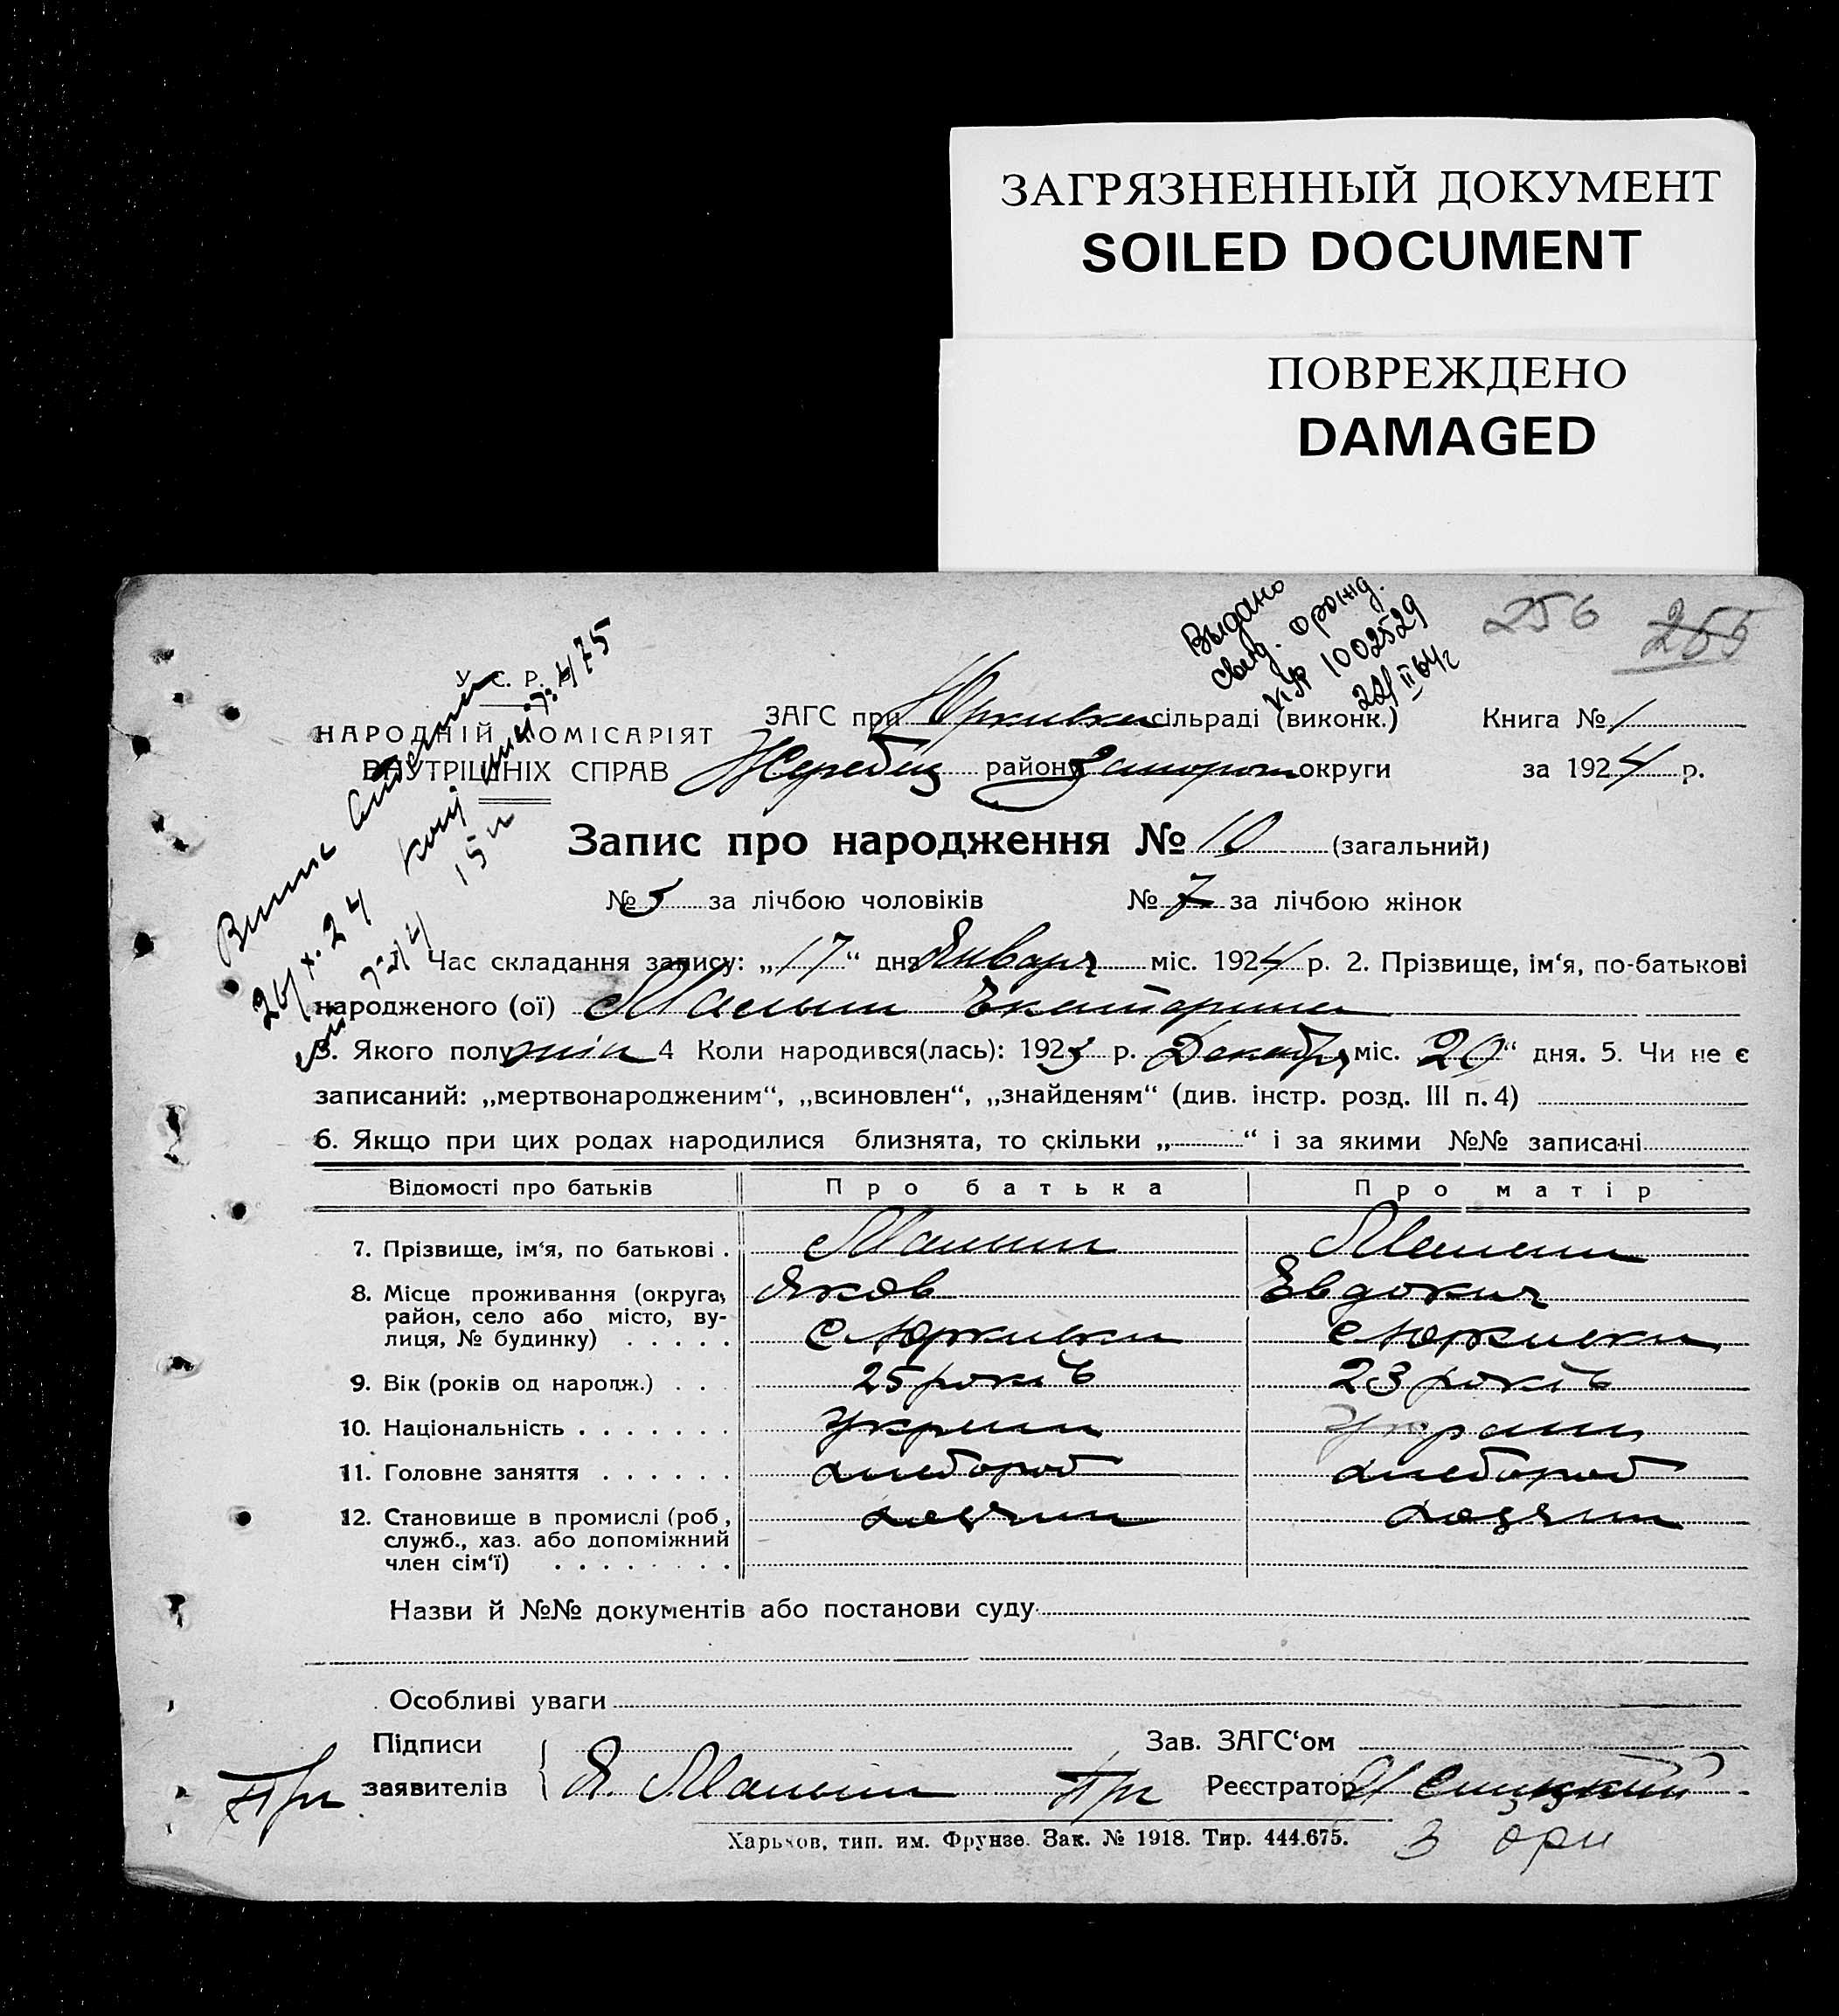 ЗАГРЯЗНЕННЫЙ ДОКУМЕНТ
SOILED DOCUMENT
ПОВРЕЖДЕНО
DAMAGED
256 255
Выдано
свид. о рожд.
№ 1002529
22/II 64 г
У. С. Р. Р.
НАРОДНІЙ КОМІСАРІЯТ
ВНУТРІШНІХ СПРАВ
ЗАГС при Юрківки сільраді (виконк.) Книга № 1
Жеребец району Запорож округи за 1924 р.
Запис про народження № 10 (загальний)
№ 5 за лічбою чоловіків № 7 за лічбою жінок
Час складання запису: „17“ дня Января міс. 1924 р. 2. Прізвище, ім‘я, по-батькові
народженого (ої) Малыш Екатерина
3. Якого полу жін 4 Коли народився(лась): 1923 р. Декабря міс. 20“ дня. 5. Чи не є
записаний: „мертвонародженим“, „всиновлен“, „знайденям“ (див. інстр. розд. III п. 4)
6. Якщо при цих родах народилися близнята, то скільки „ “ і за якими №№ записані
Відомості про батьків Про батька Про матір
7. Прізвище, ім‘я, по батькові . Малыш Малыш
8. Місце проживання (округа, Яков Евдокия
район, село або місто, ву-
лиця, № будинку) . . . . . с Юркивки с Юркивки
9. Вік (років од народж.) . . . 25 років 23 років
10. Національність . . . . . . . украин украин
11. Головне заняття . . . . . . хлебороб хлебороб
12. Становище в промислі (роб., хозяин хозяин
служб., хаз. або допоміжний
член сім‘ї) . . . . . . . .
Назви й №№ документів або постанови суду
Особливі уваги
Підписи Зав. ЗАГС‘ом
заявителів Я. Малыш Реєстратор
Харьков, тип. им. Фрунзе. Зак. № 1918. Тир. 444.675.
3